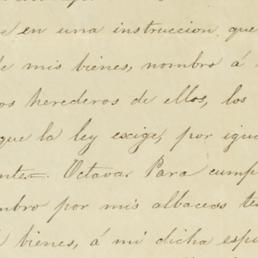 en una instruccion que
de mis bienes, nombro á
herederos de ellos, los
que la ley excige, por igu
Octava: Para cump
mbro por mis albaceas te
bienes, á mi dicha espo